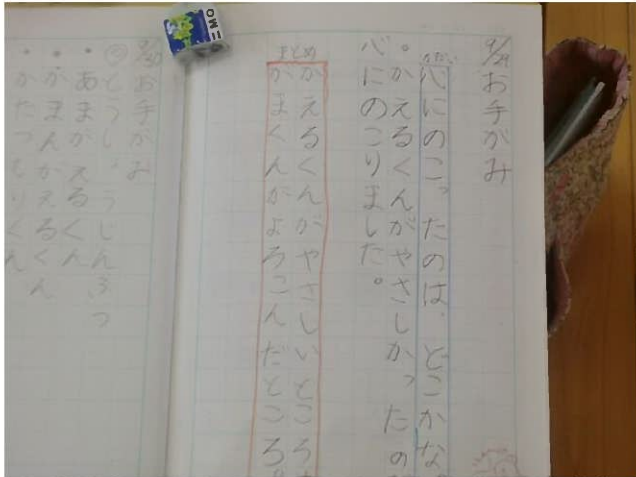 9/29 お手がみ
かだい
心にのこったのは、どこかな
・かえるくんがやさしかったの
心にのこりました。
まとめ
かえるくんがやさしいところ
がまくんがよろこんだところ
9/30 お手がみ
・あまがえるくん
・がまん かえるくん
・かたつむりくん
MO